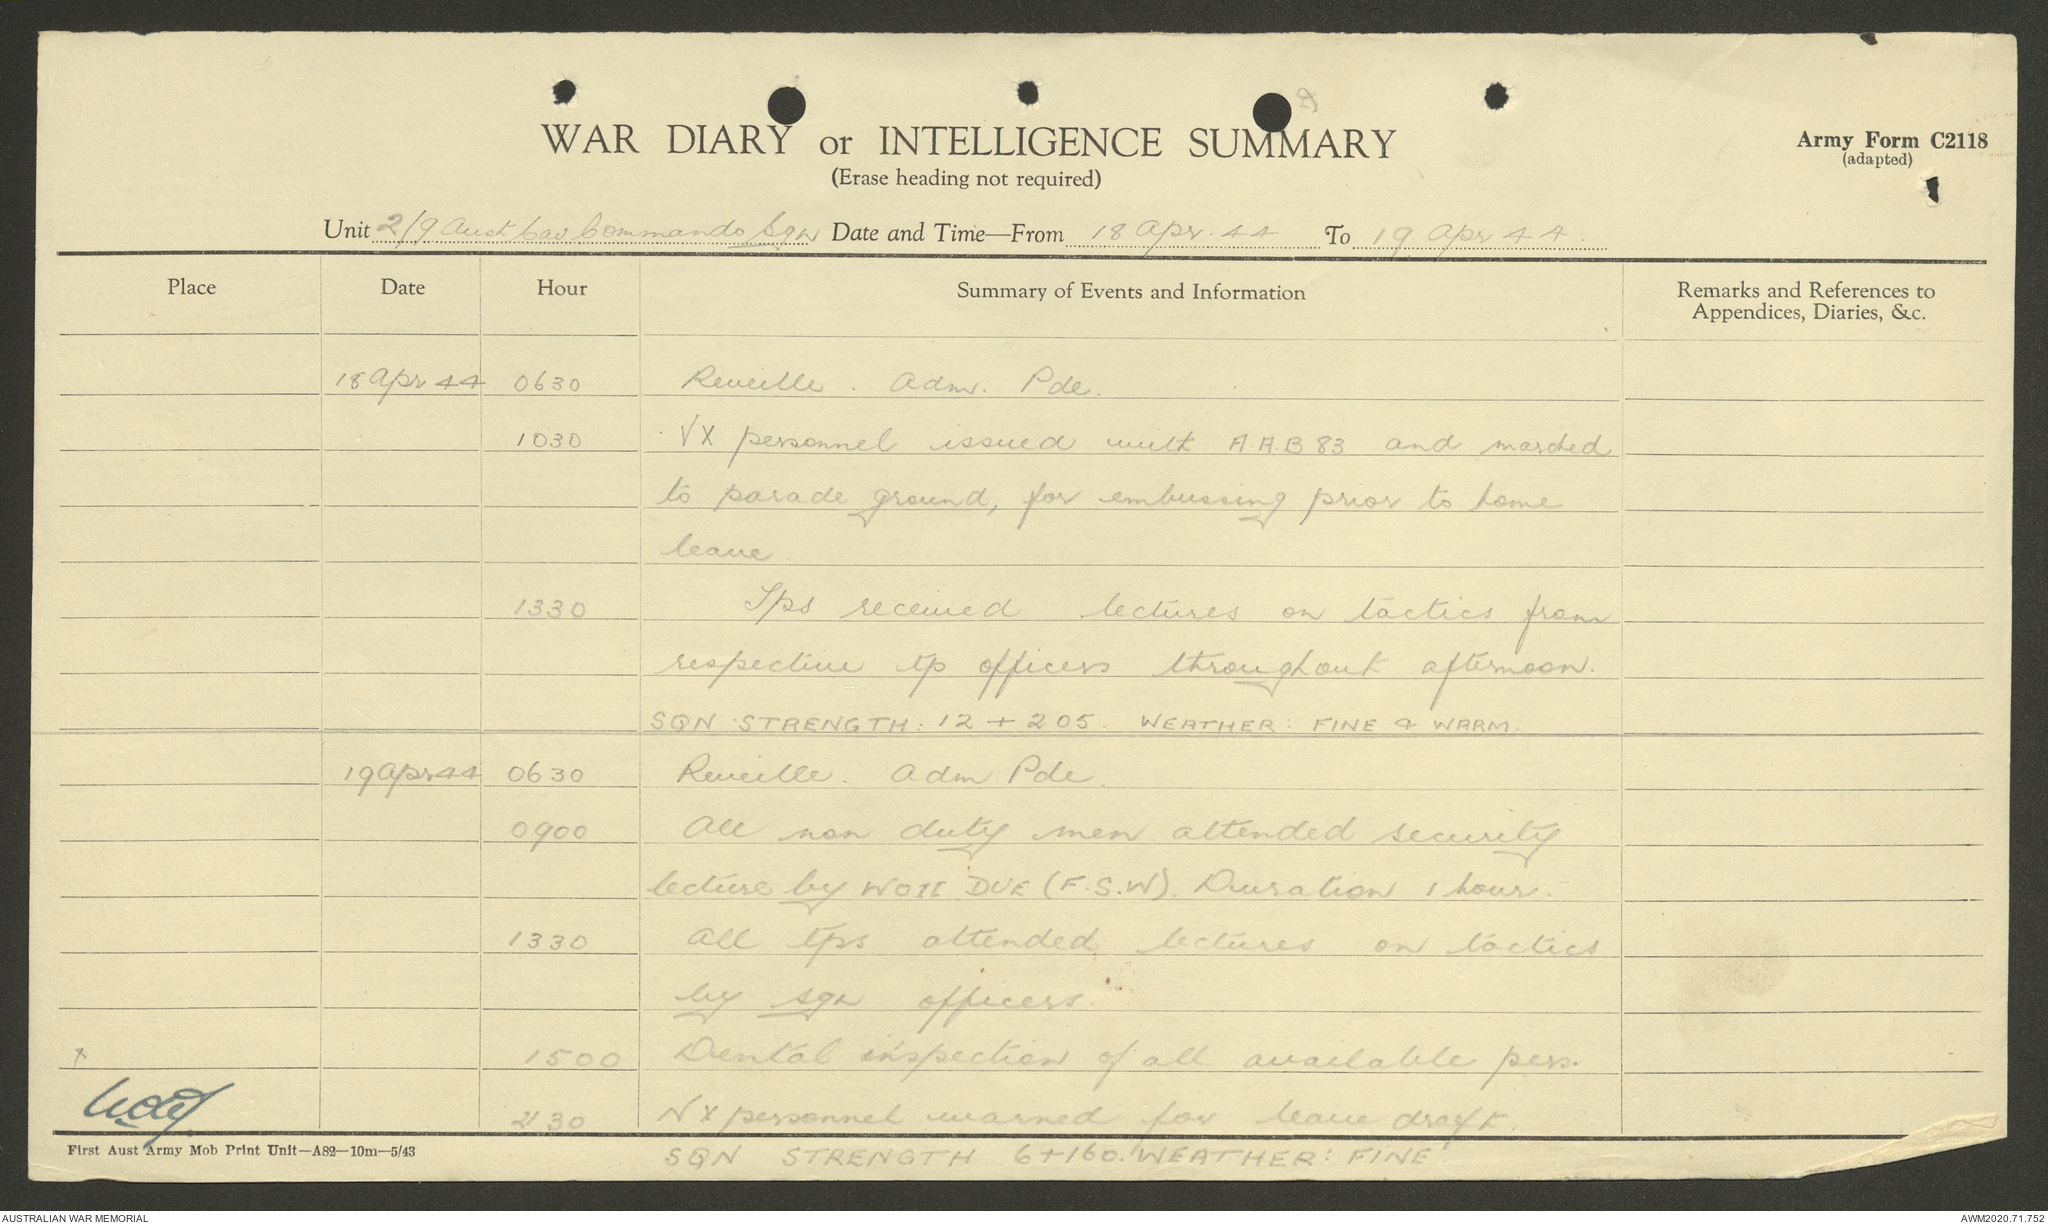 WAR DIARY or INTELLIGENCE SUMMARY
(Erase heading not required)
Army Form C2118
(adapted)
Unit 2/9 Aust Cav Commando Sqn Date and Time—From 18 Apr. 44 To 19 Apr 44.
Place Date Hour Summary of Events and Information Remarks and References to
Appendices, Diaries, &c.
18 Apr 44 0630 Reveille. Adm. Pde.
1030 VX personnel issued with A.A.B 83 and marched
to parade ground, for embussing prior to home
leave.
1330 Tps received lectures on tactics from
respective tp officers throughout afternoon.
SQN STRENGTH: 12 + 205. WEATHER: FINE & WARM.
19 Apr 44 0630 Reveille. Adm Pde.
0900 All non duty men attended security
lecture by WOII DUE (F.S.W). Duration 1 hour.
1330 All tps attended lectures on tactics
by sqn officers.
x 1500 Dental inspection of all available pers.
2130 NX personnel warned for leave draft.
First Aust Army Mob Print Unit—A82—10m—5/43
SQN STRENGTH 6+160. WEATHER: FINE
AUSTRALIAN WAR MEMORIAL
AWM2020.71.752